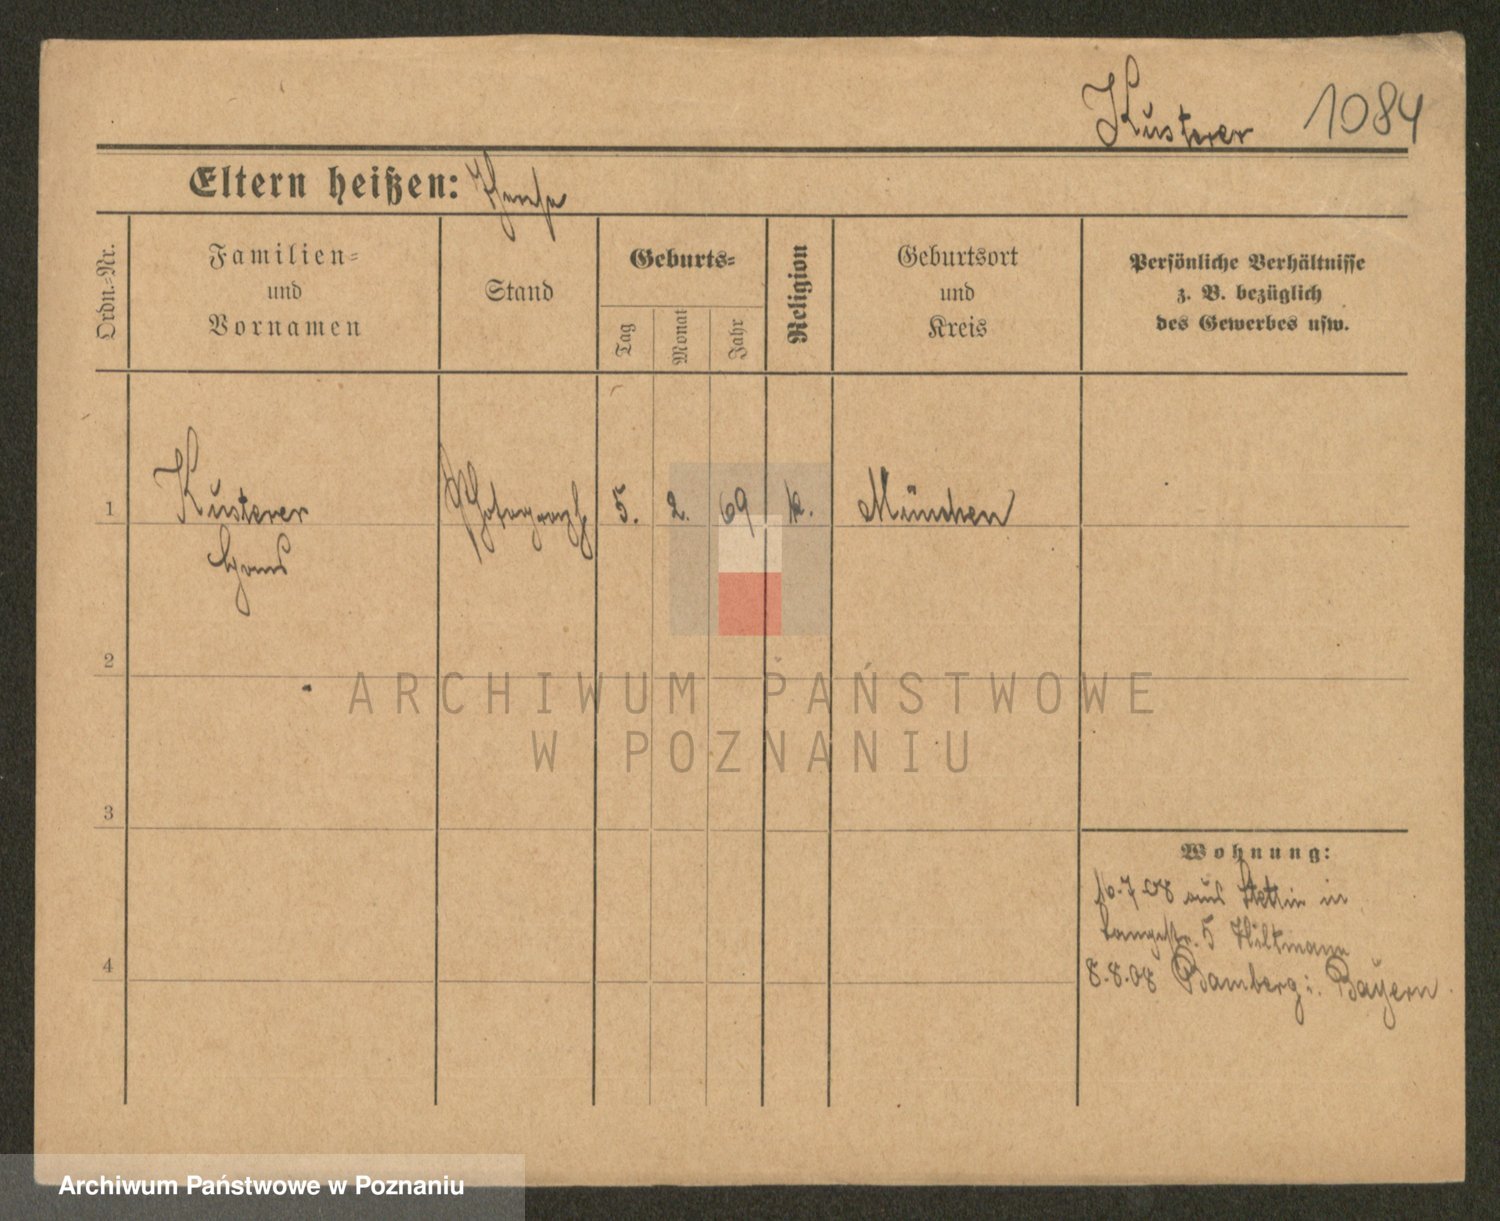 Kusterer 1084
Eltern heißen:
Ordn.-Nr.
Familien-
und
Vornamen
Stand
Geburts-
Tag
Monat
Jahr
Religion
Geburtsort
und
Kreis
Persönliche Verhältnisse
z. B. bezüglich
des Gewerbes usw.
1 Kusterer Photograph 5. 2. 69 k. München
Hans
2
ARCHIWUM PAŃSTWOWE
W POZNANIU
3
Wohnung:
10.7.08 aus Stettin in
Langestr. 5 Hiltmann
4
8.8.08 Bamberg i. Bayern
Archiwum Państwowe w Poznaniu